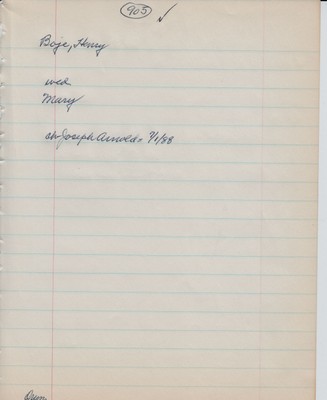 905 ✓
Boje, Henry
wed
Mary
ch Joseph Arnold - 7/1/88